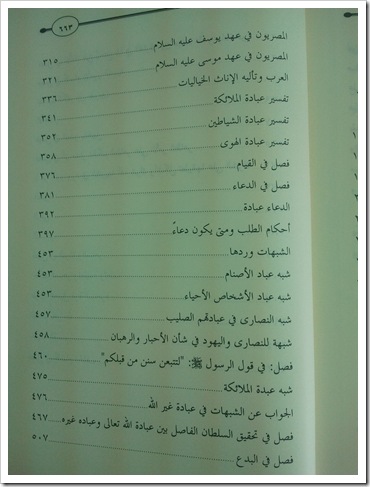 ٦٦٣
المصريون في عهد يوسف عليه السلام
المصريون في عهد موسى عليه السلام ٣١٥
العرب وتأليه الإناث الخياليات ٣٢١
تفسير عبادة الملائكة ٣٣٦
تفسير عبادة الشياطين ٣٤١
تفسير عبادة الهوى ٣٥٢
فصل في القيام ٣٥٨
فصل في الدعاء ٣٧٦
الدعاء عبادة ٣٨١
أحكام الطلب ومتى يكون دعاءً ٣٩٢
الشبهات وردها ٣٩٧
شبه عباد الأصنام ٤٥٣
شبه عباد الأشخاص الأحياء ٤٥٣
شبه النصارى في عبادتهم الصليب ٤٥٣
شبهة للنصارى واليهود في شأن الأحبار والرهبان ٤٥٧
فصل: في قول الرسول ﷺ: "لتتبعن سنن من قبلكم" ٤٥٨
شبه عبدة الملائكة ٤٦٠
الجواب عن الشبهات في عبادة غير الله ٤٧٥
فصل في تحقيق السلطان الفاصل بين عبادة الله تعالى وعباده غيره ٤٧٦
فصل في البدع ٤٦٧
٥٠٧